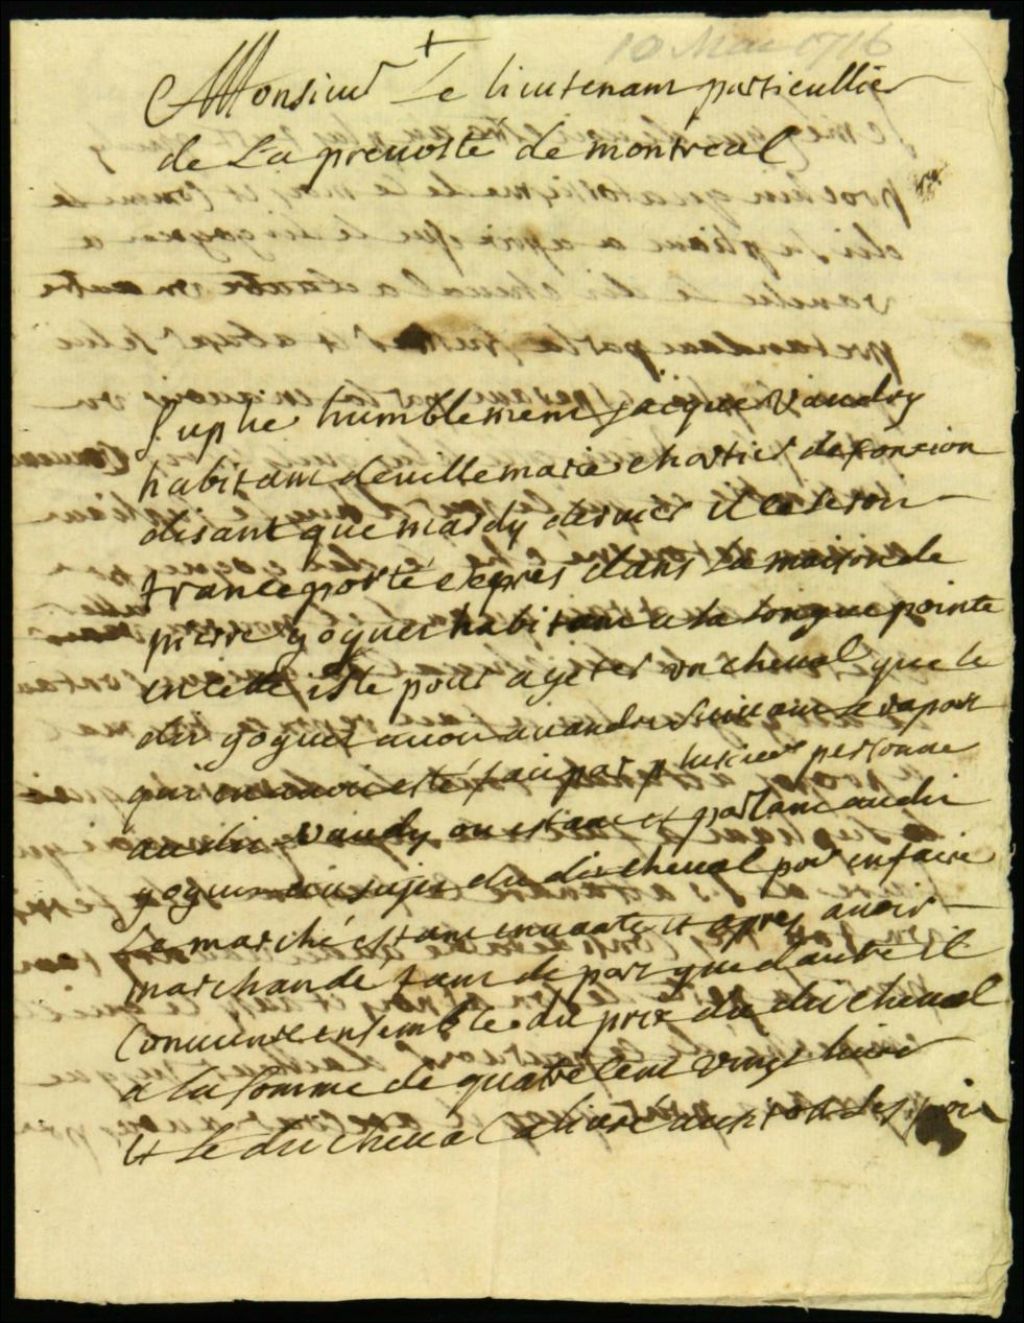 10 Mai 1716
Monsieur Le lieutenant particullier
de La prevosté de montreal
Suplie humblement jacque vaudry
habitant de ville marie chartier de fonxion
disant que mardy dernier il ce seroit
transporté exprès dans La maison de
pierre goguet habitant a la longue pointe
en cette isle pour ageter un cheval que le
dit goguet avoit a vandre suivant le raport
qui en avoit esté fait par plusieur personne
au dit vaudry ou estant et parlant au dit
goguet au sujet du dit cheval pour en faire
Le marché estant en vante et apres avoir
marchandé tant de part que dautre il
Convinre ensemble du prix du dit cheval
a la somme de quatre cent vingt livre
et Le dit cheval a livré